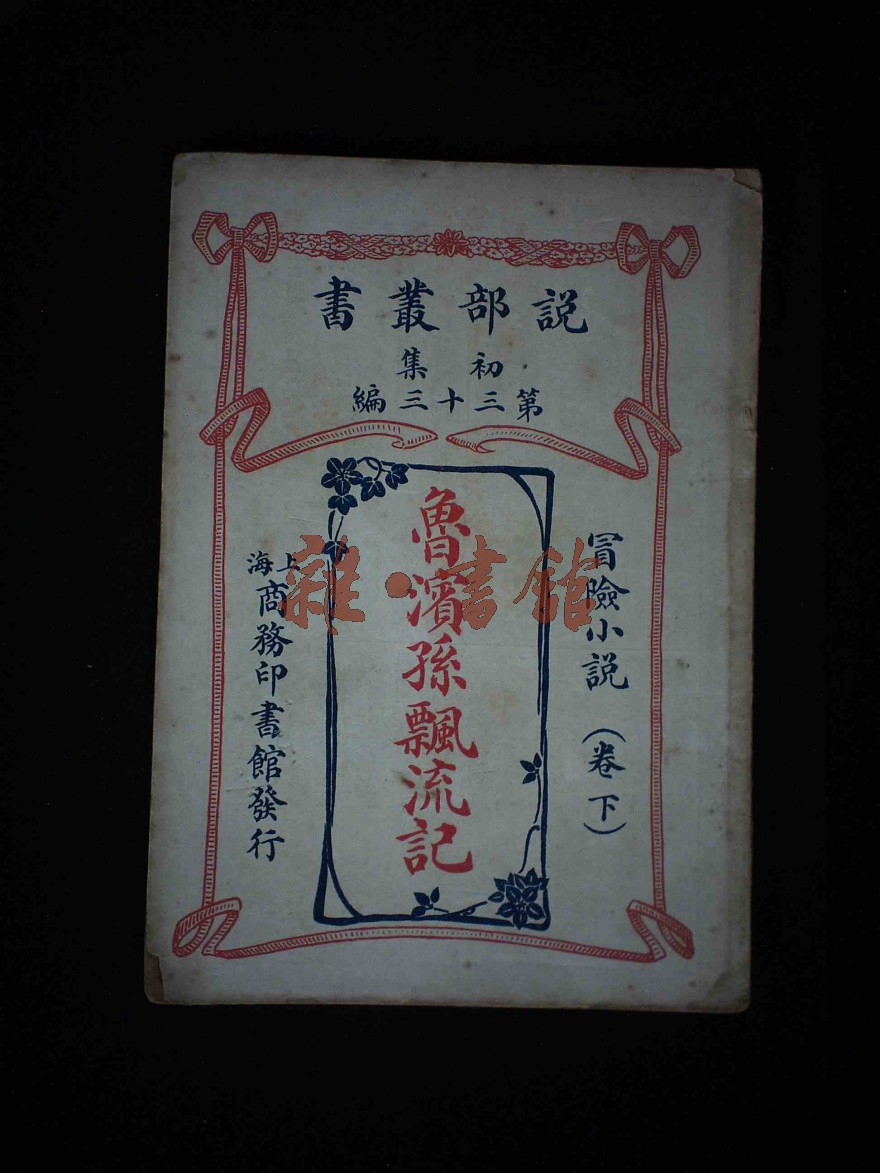 説部叢書
初集
第三十三編
冒險小説（卷下）
魯濱孫飄流記
上海
商務印書館發行
雜·書館